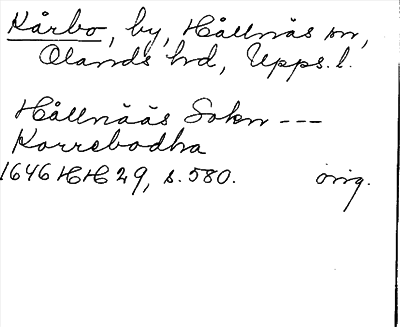 Kårbo, by, Hållnäs sn,
Olands hd, Upps. l.
Hållnääs Sokn ---
Korrebodha
1646 HH 29, s. 580. orig.